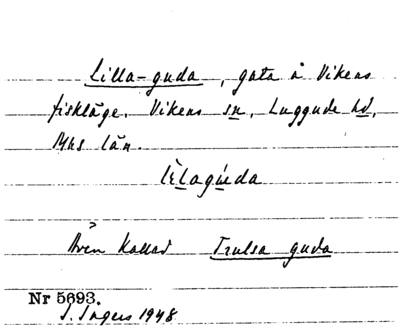 Lilla-guda, gata i Vikens
fiskläge. Vikens sn, Luggude hd,
Mhs län.
lèlagúda
Även kallad Trulsa guda
Nr 5693.
I. Ingers 1948